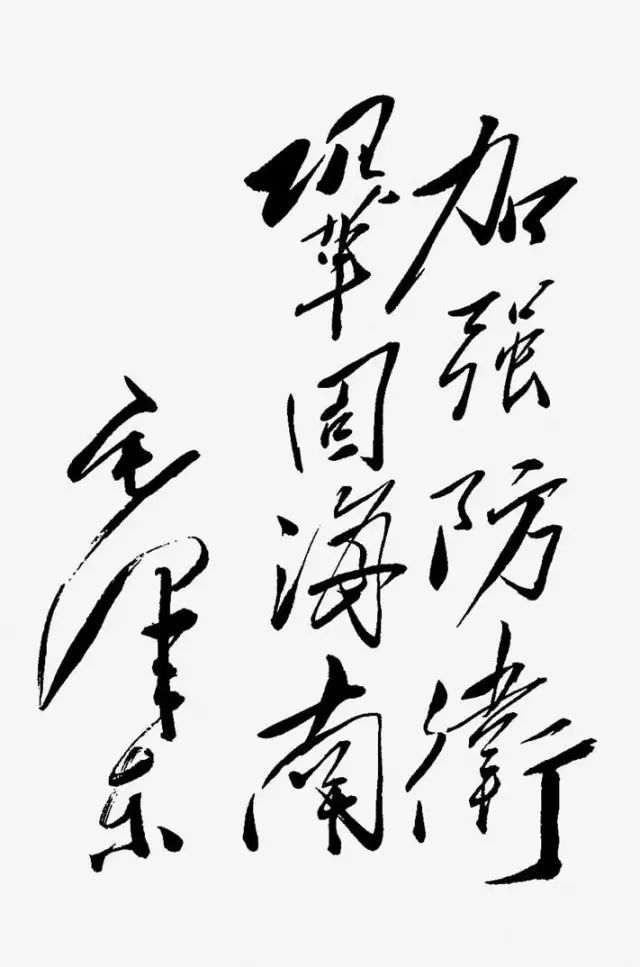 加强防衛
巩固海南
毛泽东